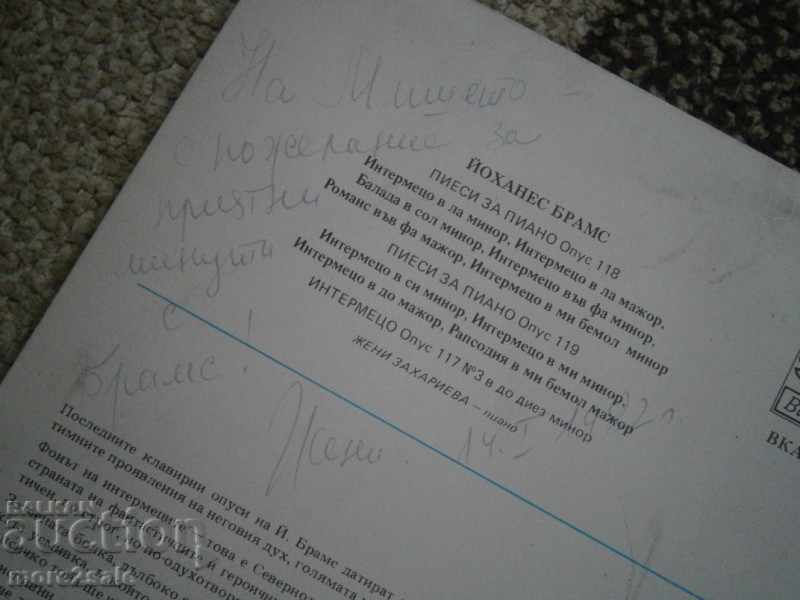 На Мишето –
с пожелание за
приятни
минути
с
Брамс!
Жени. 14.I
ЙОХАНЕС БРАМС
ПИЕСИ ЗА ПИАНО Опус 118
Интермецо в ла минор, Интермецо в ла мажор,
Балада в сол минор, Интермецо във фа минор,
Романс във фа мажор, Интермецо в ми бемол минор
ПИЕСИ ЗА ПИАНО Опус 119
Интермецо в си минор, Интермецо в ми минор,
Интермецо в до мажор, Рапсодия в ми бемол мажор
ИНТЕРМЕЦО Опус 117 №3 в до диез минор
ЖЕНИ ЗАХАРИЕВА – пиано
ВКА
Последните клавирни опуси на Й. Брамс датират
тимните проявления на неговия дух, голямата
Фонът на интермеци
това е Северно
страната на
героич
BALKAN
auction
more2sale